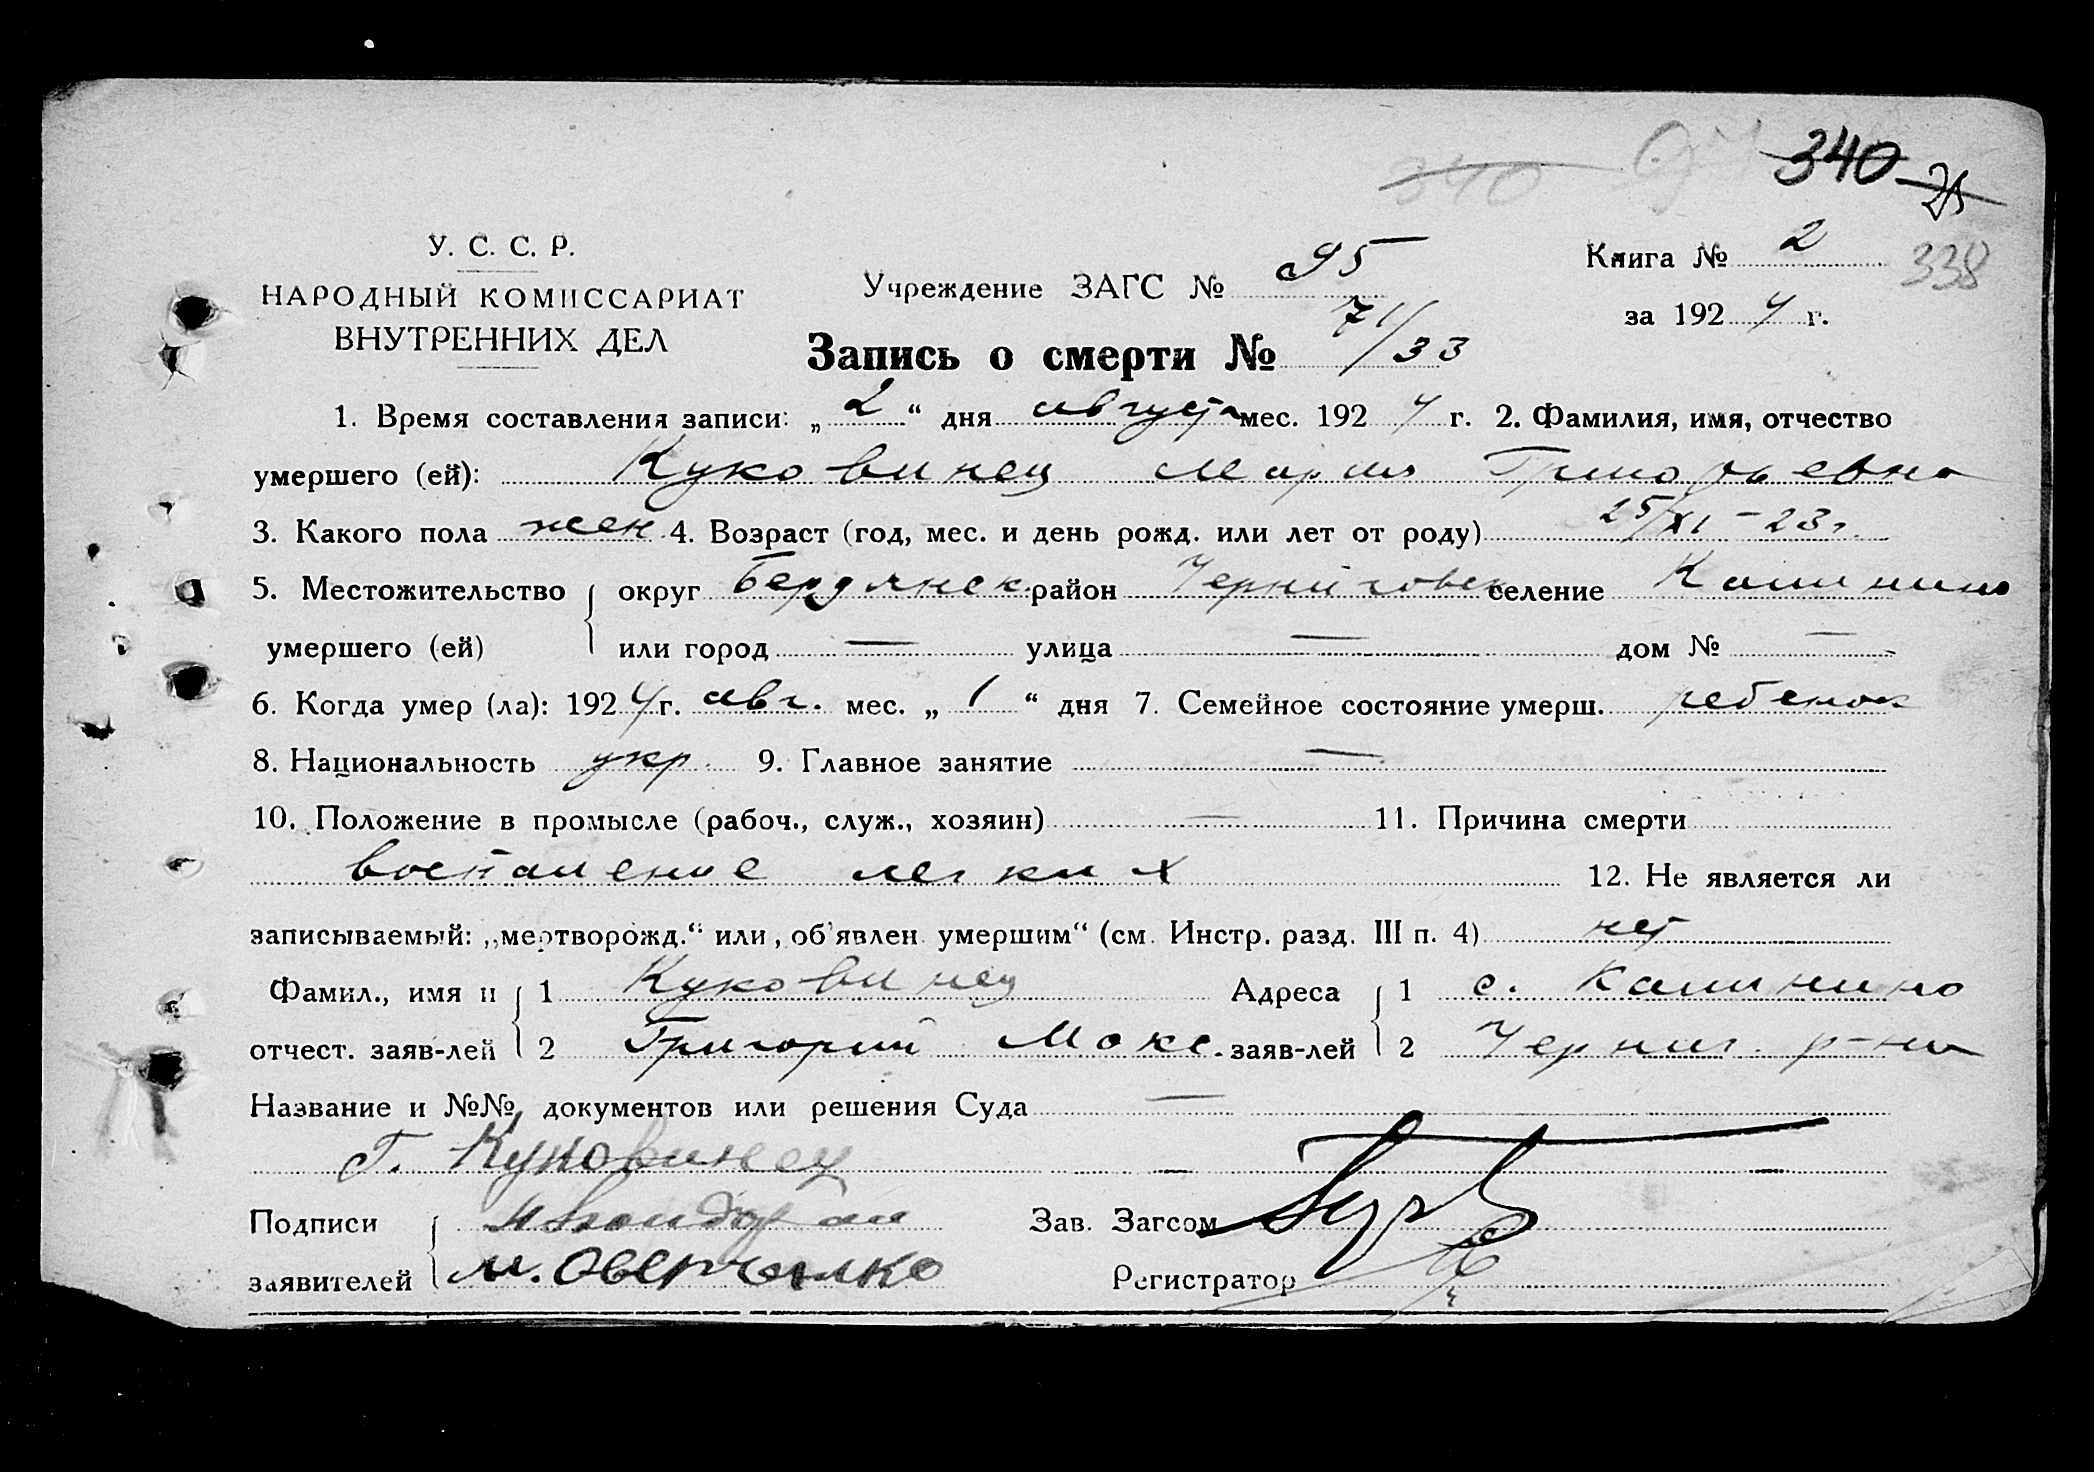 340
340
25
У. С. С. Р.
НАРОДНЫЙ КОМИССАРИАТ
ВНУТРЕННИХ ДЕЛ
Учреждение ЗАГС № 95
Книга № 2
338
за 1924 г.
Запись о смерти № 71/33
1. Время составления записи: „2“ дня августа мес. 1924 г. 2. Фамилия, имя, отчество
умершего (ей): Куковинец Мария Григорьевна
3. Какого пола жен 4. Возраст (год, мес. и день рожд. или лет от роду) 25/XI-23г.
5. Местожительство округ Бердянск район Черниговск селение Калинино
умершего (ей) или город — улица — дом № —
6. Когда умер (ла): 1924 г. авг. мес. „1“ дня 7. Семейное состояние умерш. ребенок
8. Национальность укр. 9. Главное занятие —
10. Положение в промысле (рабоч., служ., хозяин) — 11. Причина смерти
воспаление легких 12. Не является ли
записываемый: „мертворожд.“ или „об'явлен умершим“ (см. Инстр. разд. III п. 4) нет
Фамил., имя и 1 Куковинец Адреса 1 с. Калинино
отчест. заяв-лей 2 Григорий Макс. заяв-лей 2 Черниг. р-на
Название и №№ документов или решения Суда —
Г. Куковинец
Подписи Зав. Загсом
заявителей М. Оверченко Регистратор